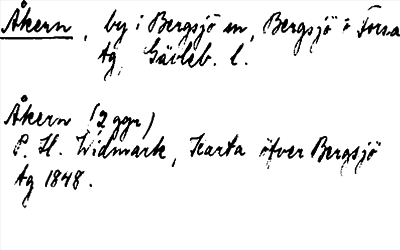 Åkern, by i Bergsjö sn, Bergsjö o Forsa
tg, Gävleb. l.
Åkern (2 ggr)
P. H. Widmark, Karta öfver Bergsjö
tg 1848.